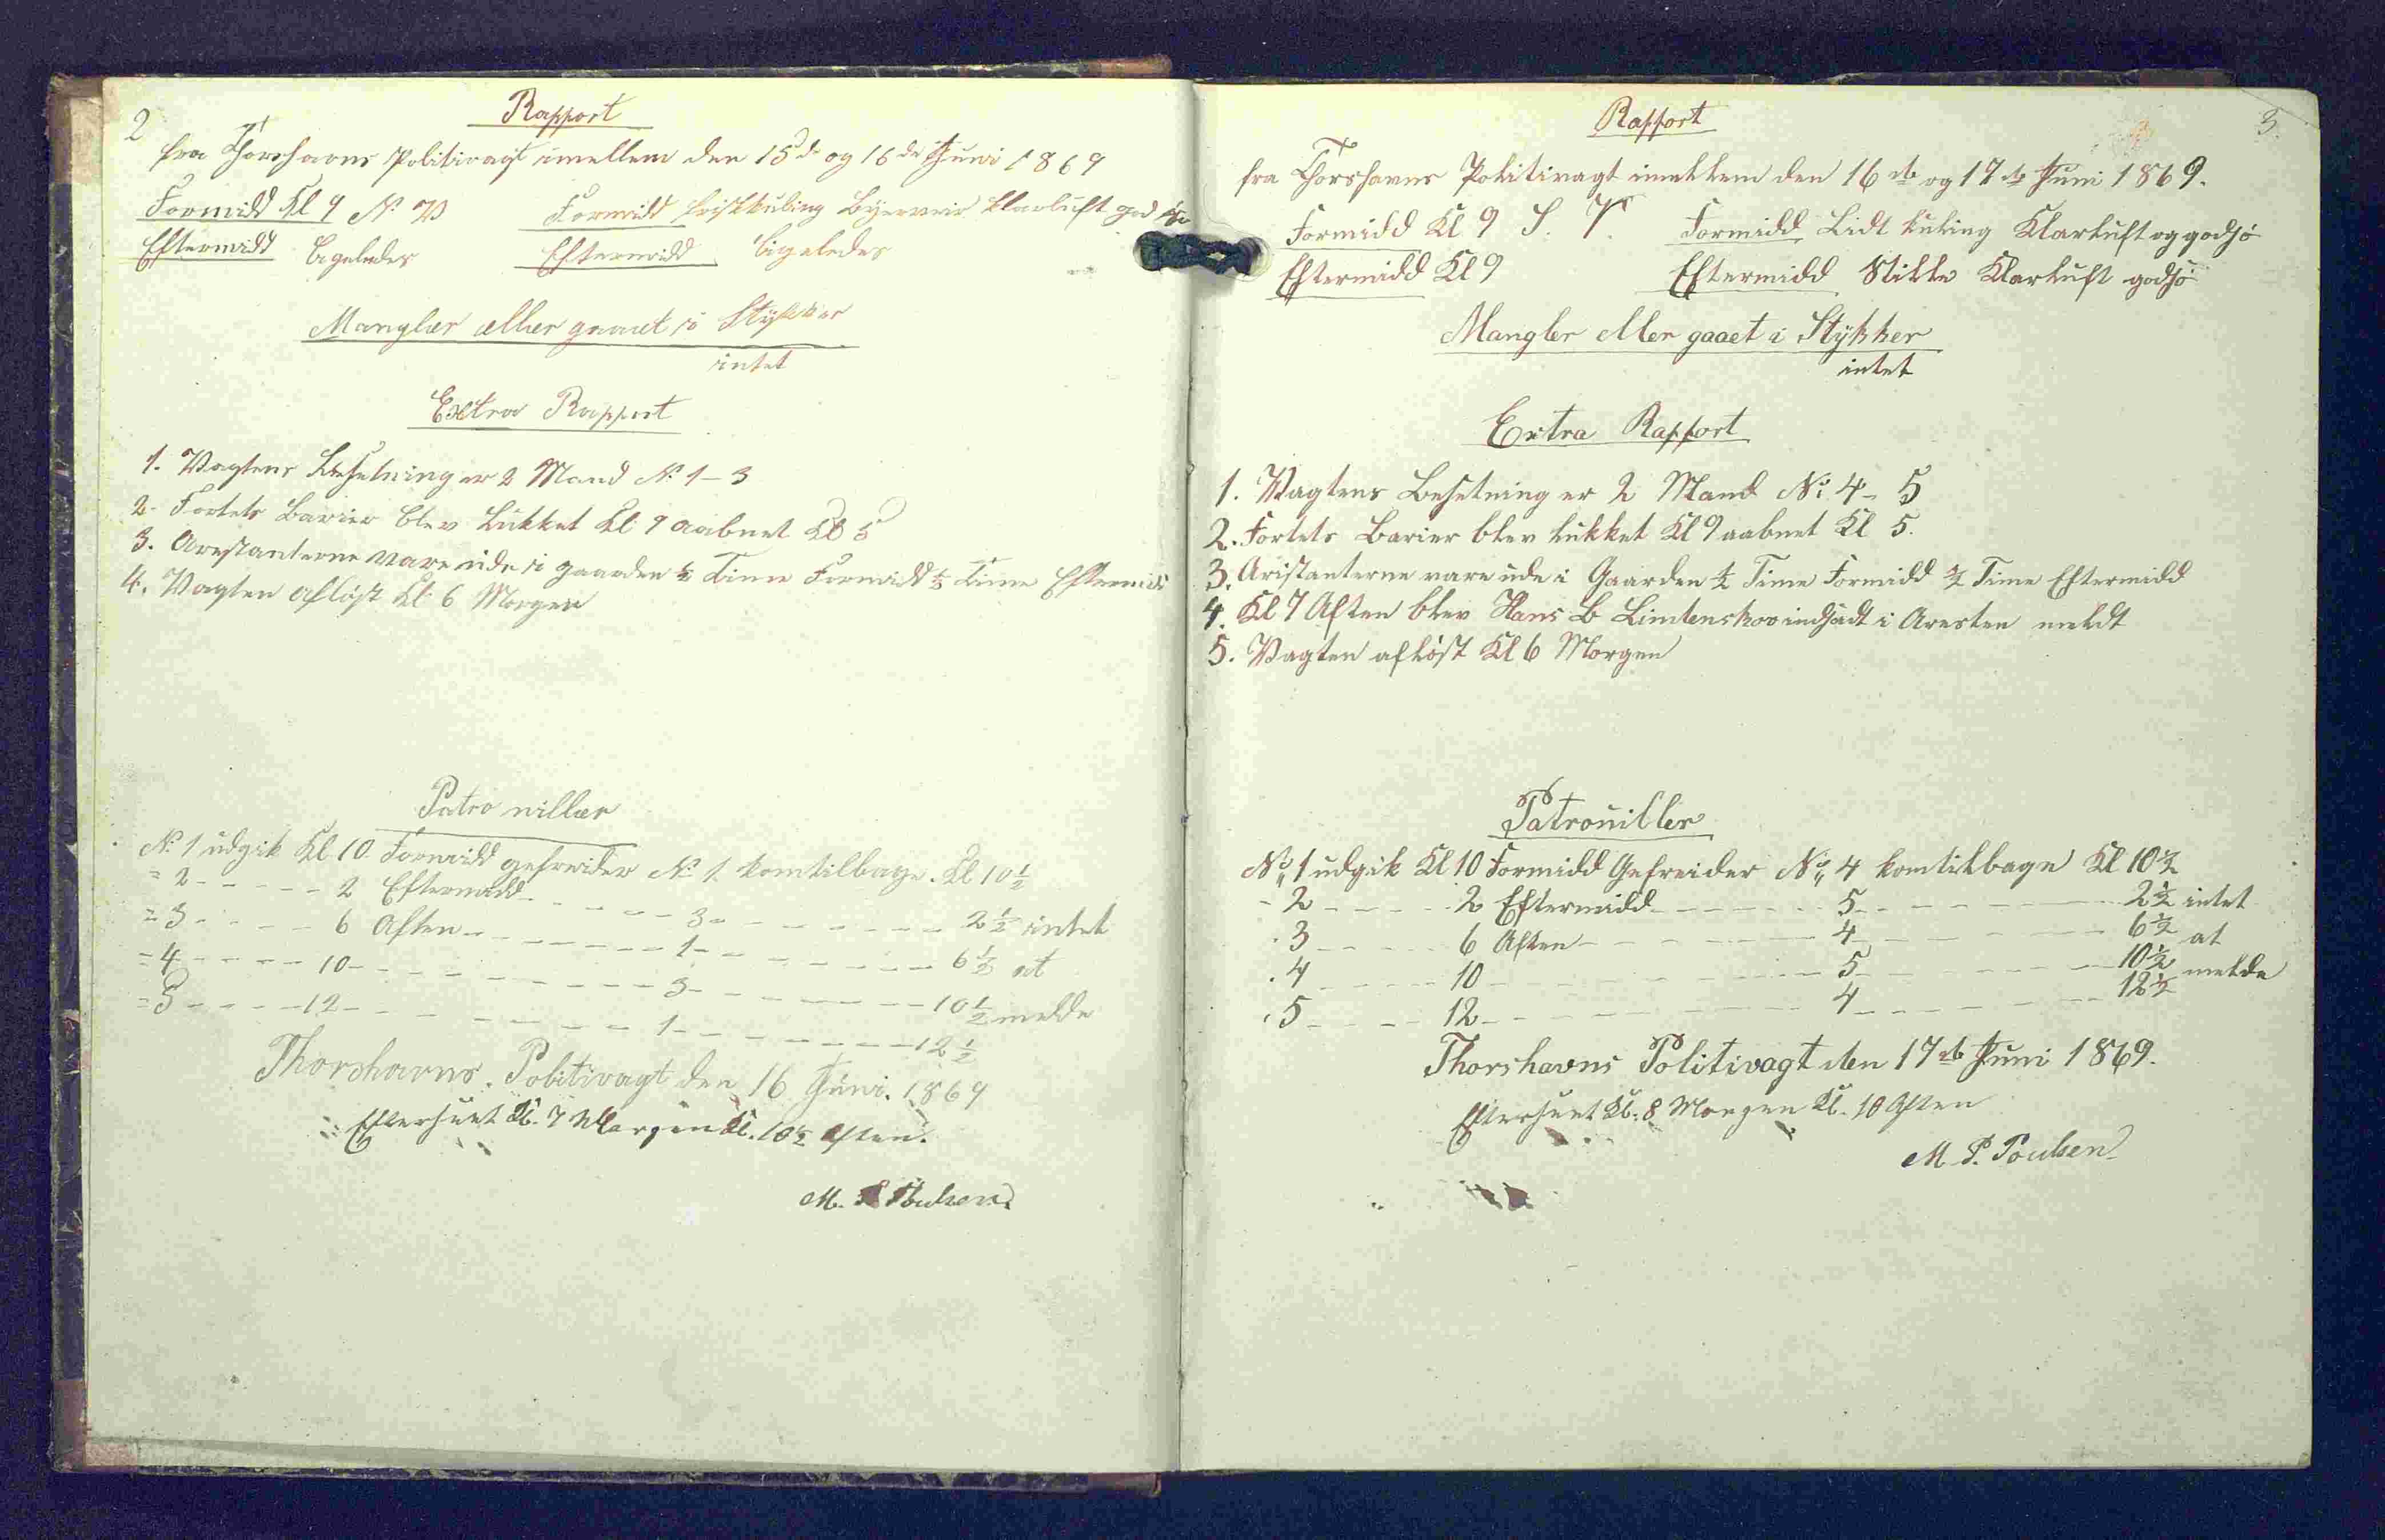 2
Rapport
fra Thorshavns Politivagt imellem den 15de og 16de Juni 1869
Formidd Kl 9 N. V Formidd friskkuling Byerveir klarluft god sjø
Eftermidd ligeledes Eftermidd ligeledes
Mangler eller gaaet i Stykker
intet
Extra Rapport
1. Vagtens Besetning er 2 Mand No 1 - 3
2. Fortets Barier blev lukket Kl 9 aabnet Kl 5
3. Arestanterne vare ude i gaarden ½ Time Formidd ½ Time Eftermidd
4. Vagten afløst Kl 6 Morgen
Patrouiller
No 1 udgik Kl 10 Formidd gefreider No 1 komtilbage Kl 10½
= 2 - - - - - 2 Eftermidd - - - - - 3 - - - - - - 2½ intet
= 3 - - - - 6 Aften - - - - - - 1 - - - - - - 6½ at
= 4 - - - - 10 - - - - - - - - 3 - - - - - - 10½ melde
= 5 - - - - 12 - - - - - - - - 1 - - - - - - 12½
Thorshavns Politivagt den 16 Juni 1869
Efterseet Kl. 7 Morgen Kl. 10½ Aften.
M. P. Poulsen
3.
Rapport
fra Thorshavns Politivagt imellem den 16de og 17de Juni 1869.
Formidd Kl 9 S. V. Formidd Lidt kuling Klarluft og godsjø
Eftermidd Kl 9 Eftermidd Stille Klarluft godsjø
Mangler eller gaaet i Stykker
intet
Extra Rapport
1. Vagtens Besetning er 2 Mand No. 4 - 5
2. Fortets Barier blev lukket Kl 9 aabnet Kl 5.
3. Aristanterne vare ude i Gaarden ½ Time Formidd ½ Time Eftermidd
4. Kl 7 Aften blev Hans B indsadt i Aresten meldt
5. Vagten afløst Kl 6 Morgen
Patrouiller
No 1 udgik Kl 10 Formidd Gefreider No 4 komtilbage Kl 10½
- 2 - - - - - 2 Eftermidd - - - - - 5 - - - - - - 2½ intet
- 3 - - - - 6 Aften - - - - - - 4 - - - - - - 6½ at
- 4 - - - - 10 - - - - - - - - 5 - - - - - - 10½ melde
- 5 - - - - 12 - - - - - - - - 4 - - - - - - 12½
Thorshavns Politivagt den 17de Juni 1869.
Efterseet Kl. 8 Morgen Kl. 10 Aften
M. P. Poulsen